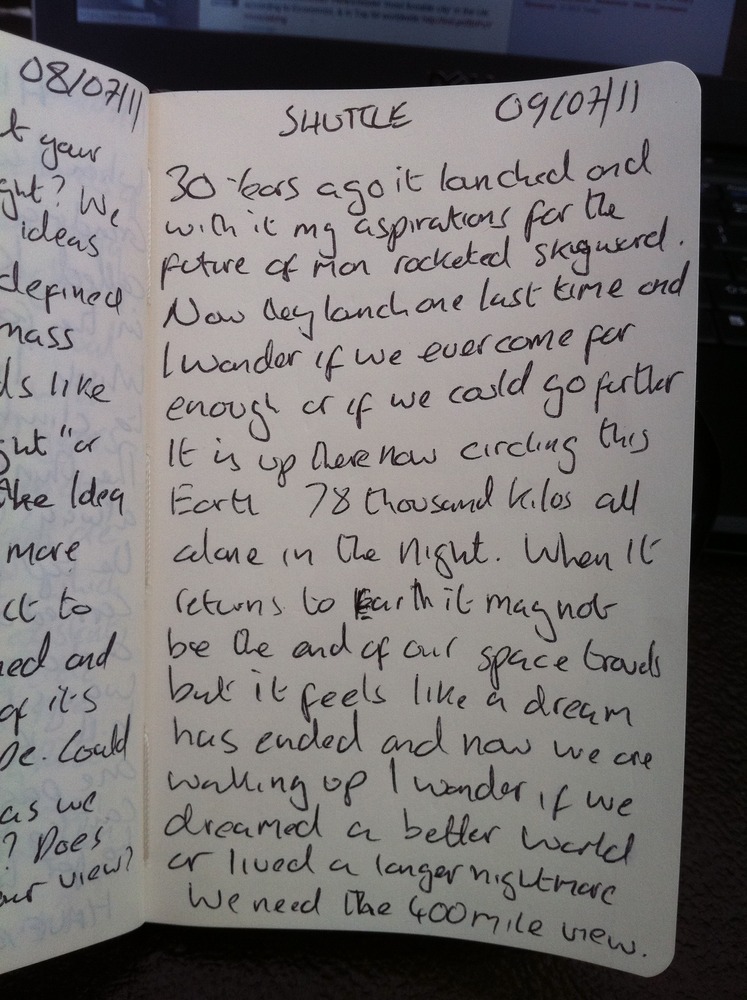 08/07/11
t your
ght? We
ideas
defined
mass
ds like
ght "or
the Idea
more
ct to
ned and
of it's
pe. Could
as we
? Does
our view?
SHUTTLE 09/07/11
30 Years ago it lanched and
with it my aspirations for the
future of man rocketed skyward.
Now they lanch one last time and
I wonder if we ever come far
enough or if we could go further
It is up there now circling this
Earth 78 thousand kilos all
alone in the night. When it
returns to Earth it may not
be the end of our space travels
but it feels like a dream
has ended and now we are
waking up I wonder if we
dreamed a better world
or lived a longer nightmare
We need the 400 mile view.